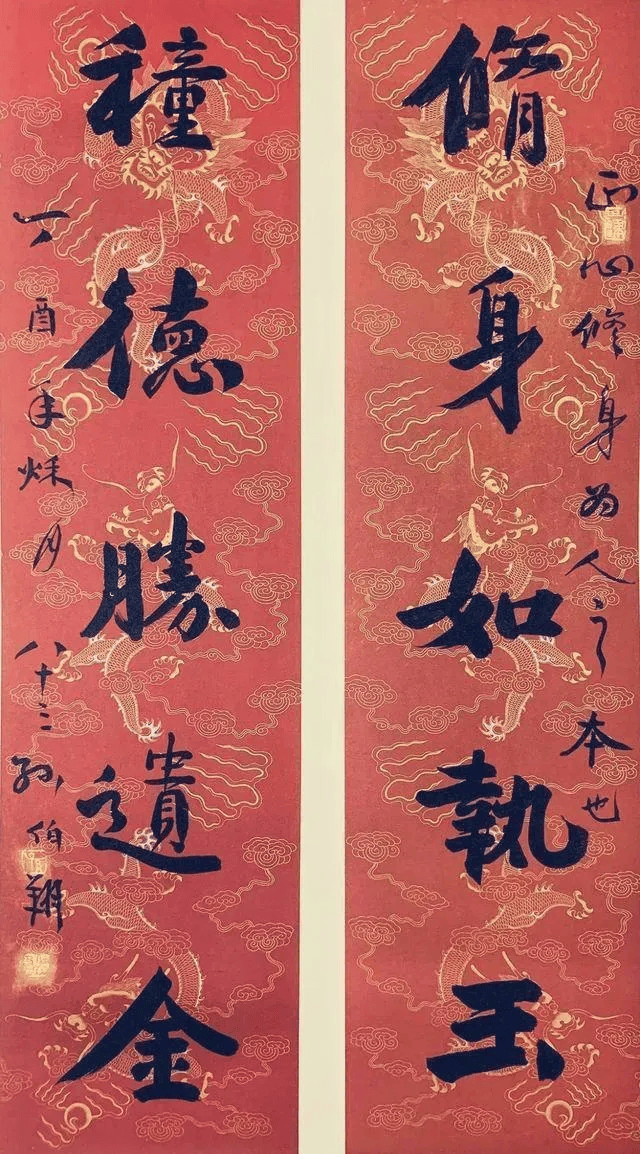 正心修身为人之本也
脩身如執玉
種德勝遺金
丁酉年烁月
八十三孙伯翔